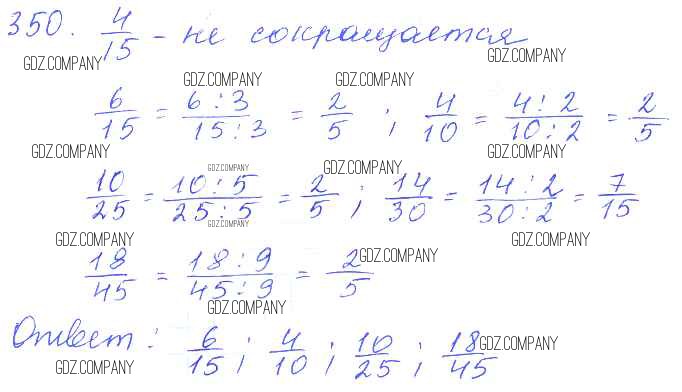 350. 4/15 - не сокращается
GDZ.COMPANY GDZ.COMPANY
GDZ.COMPANY GDZ.COMPANY
6/15 = 6:3/15:3 = 2/5 ; 4/10 = 4:2/10:2 = 2/5
GDZ.COMPANY GDZ.COMPANY
GDZ.COMPANY GDZ.COMPANY
10/25 = 10:5/25:5 = 2/5 ; 14/30 = 14:2/30:2 = 7/15
GDZ.COMPANY
GDZ.COMPANY GDZ.COMPANY
18/45 = 18:9/45:9 = 2/5
GDZ.COMPANY
GDZ.COMPANY
Ответ: 6/15 ; 4/10 ; 10/25 ; 18/45
GDZ.COMPANY
GDZ.COMPANY